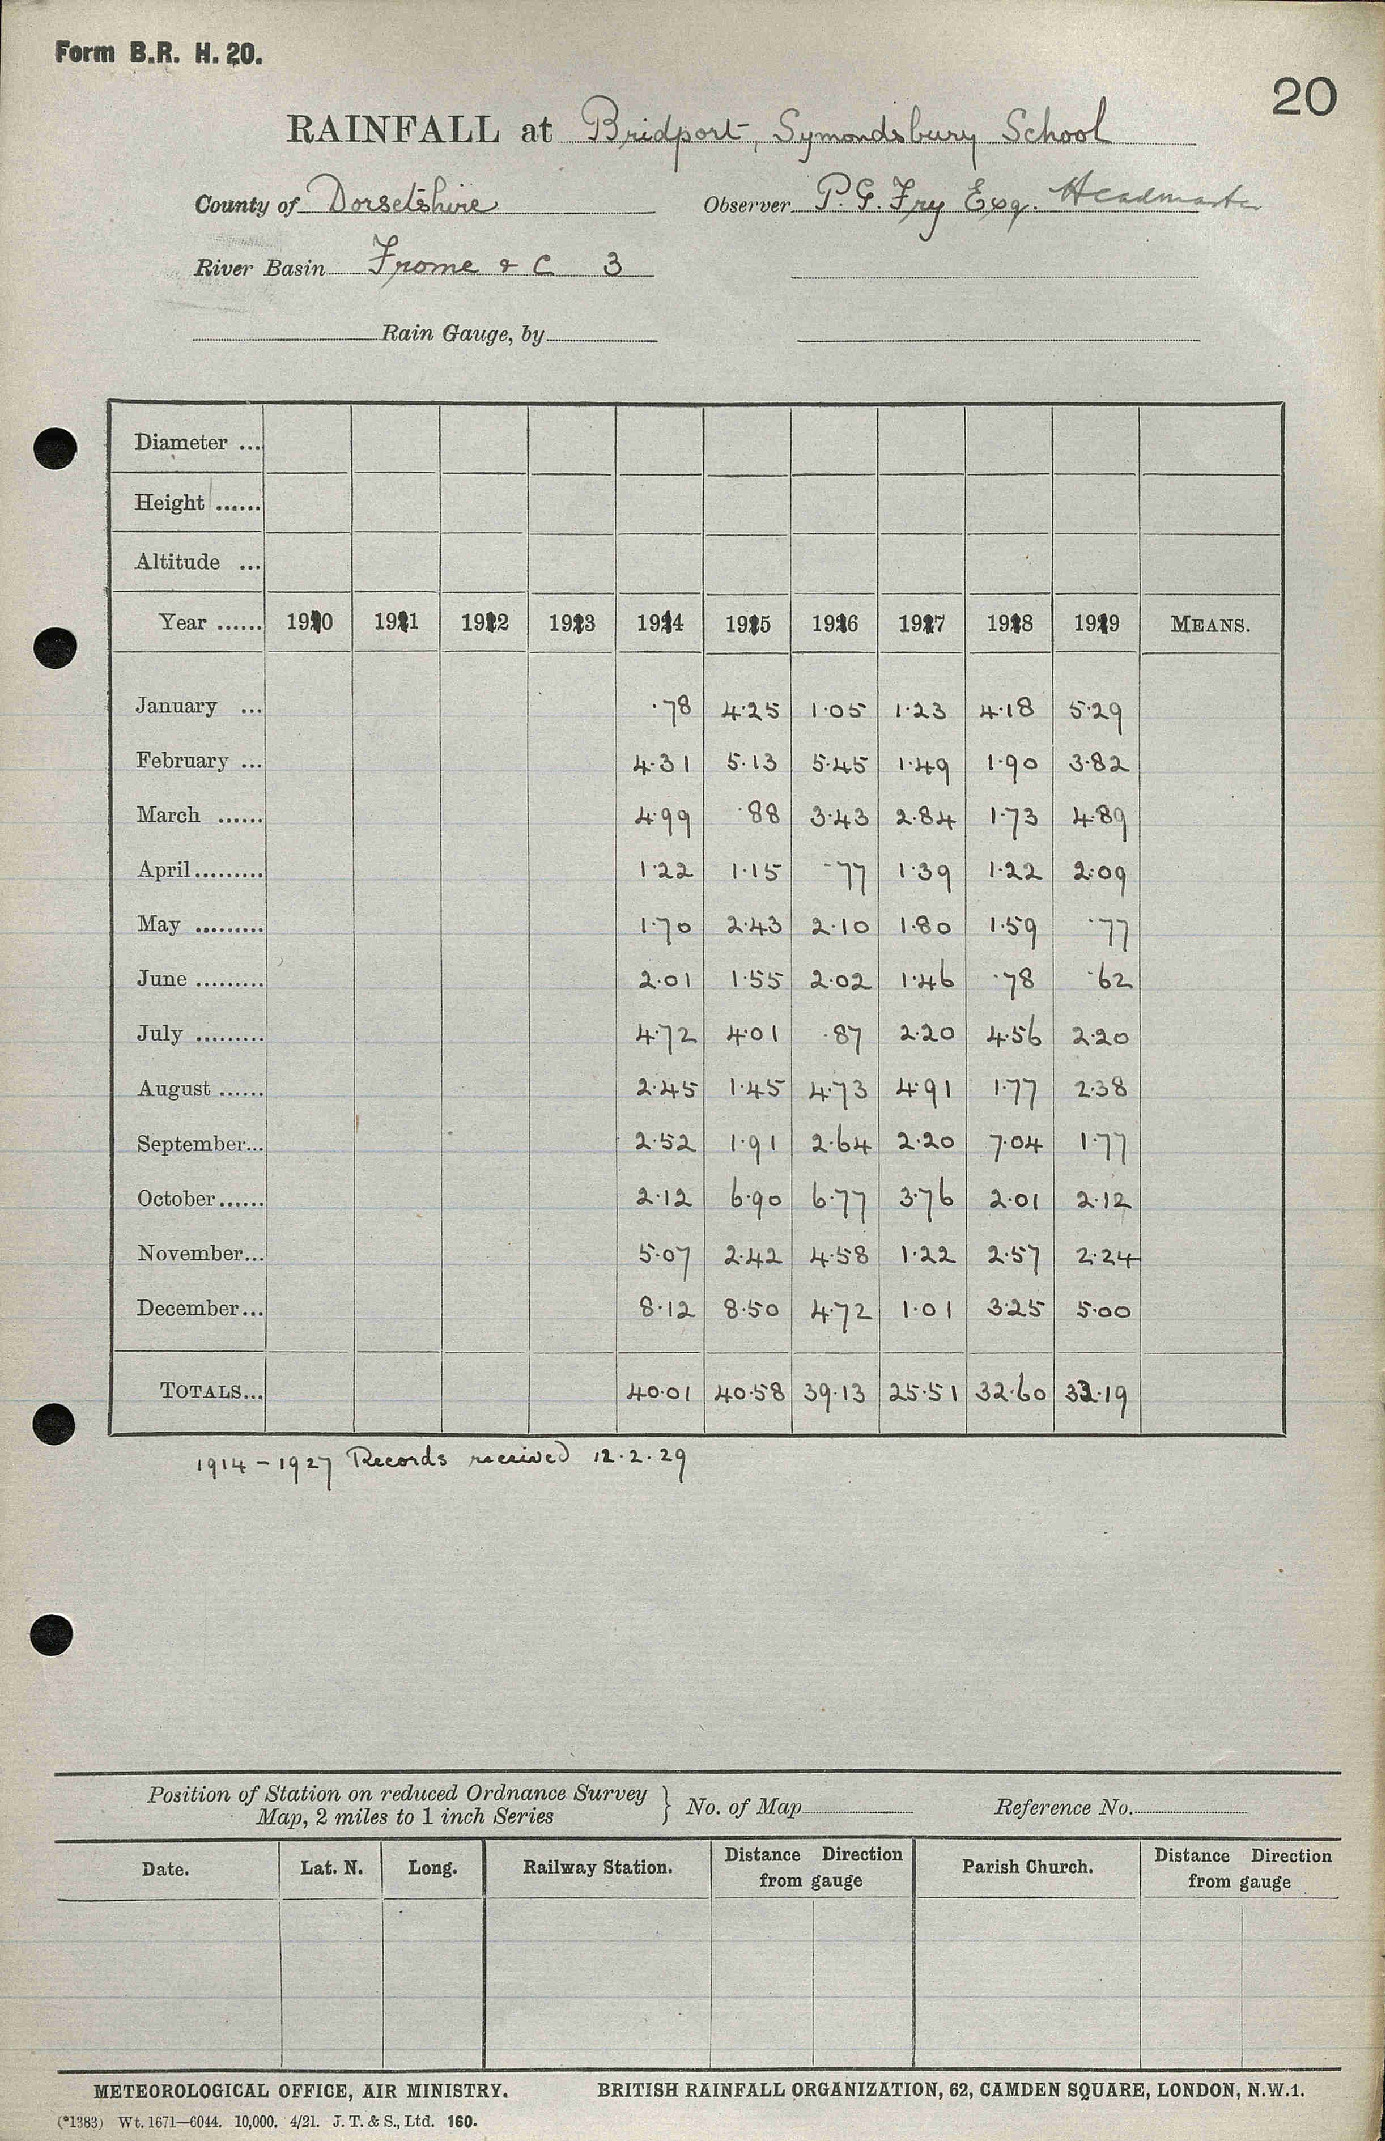 Form B.R. H. 20.
20
RAINFALL at Bridport, Symondsbury School
County of Dorsetshire Observer P. G. Fry Esq. Headmaster
River Basin Frome & C 3
Rain Gauge, by
Diameter ...
Height ......
Altitude ...
Year ...... 1910 1911 1912 1913 1914 1915 1916 1917 1918 1919 MEANS.
January ... ·78 4·25 1·05 1·23 4·18 5·29
February ... 4·31 5·13 5·45 1·49 1·90 3·82
March ...... 4·99 ·88 3·43 2·84 1·73 4·89
April ......... 1·22 1·15 ·77 1·39 1·22 2·09
May ......... 1·70 2·43 2·10 1·80 1·59 ·77
June ......... 2·01 1·55 2·02 1·46 ·78 ·62
July ......... 4·72 4·01 ·87 2·20 4·56 2·20
August ...... 2·45 1·45 4·73 4·91 1·77 2·38
September... 2·52 1·91 2·64 2·20 7·04 1·77
October ...... 2·12 6·90 6·77 3·76 2·01 2·12
November... 5·07 2·42 4·58 1·22 2·57 2·24
December... 8·12 8·50 4·72 1·01 3·25 5·00
TOTALS... 40·01 40·58 39·13 25·51 32·60 33·19
1914 - 1927 Records received 12.2.29
Position of Station on reduced Ordnance Survey
Map, 2 miles to 1 inch Series } No. of Map Reference No.
Date. Lat. N. Long. Railway Station. Distance Direction from gauge Parish Church. Distance Direction from gauge
METEOROLOGICAL OFFICE, AIR MINISTRY. BRITISH RAINFALL ORGANIZATION, 62, CAMDEN SQUARE, LONDON, N.W.1.
(*1383) Wt. 1671—6044. 10,000. 4/21. J. T. & S., Ltd. 160.